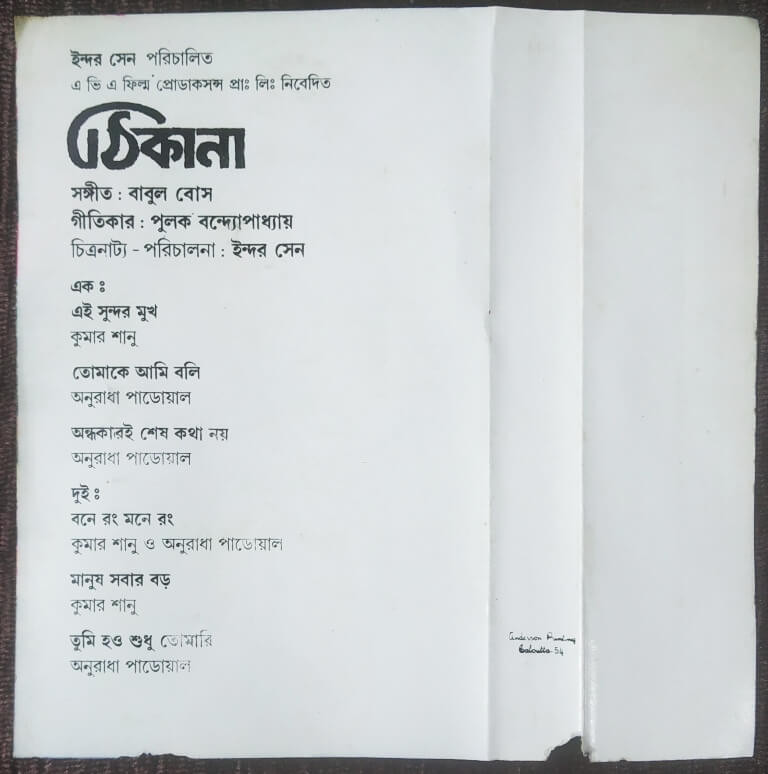 ইন্দর সেন পরিচালিত
এ ভি এ ফিল্ম প্রোডাকসন্স প্রাঃ লিঃ নিবেদিত
ঠিকানা
সঙ্গীত : বাবুল বোস
গীতিকার : পুলক বন্দ্যোপাধ্যায়
চিত্রনাট্য - পরিচালনা : ইন্দর সেন
এক ঃ
এই সুন্দর মুখ
কুমার শানু
তোমাকে আমি বলি
অনুরাধা পাডোয়াল
অন্ধকারই শেষ কথা নয়
অনুরাধা পাডোয়াল
দুই ঃ
বনে রং মনে রং
কুমার শানু ও অনুরাধা পাডোয়াল
মানুষ সবার বড়
কুমার শানু
তুমি হও শুধু তোমারি
অনুরাধা পাডোয়াল
Anderson
Calcutta-54